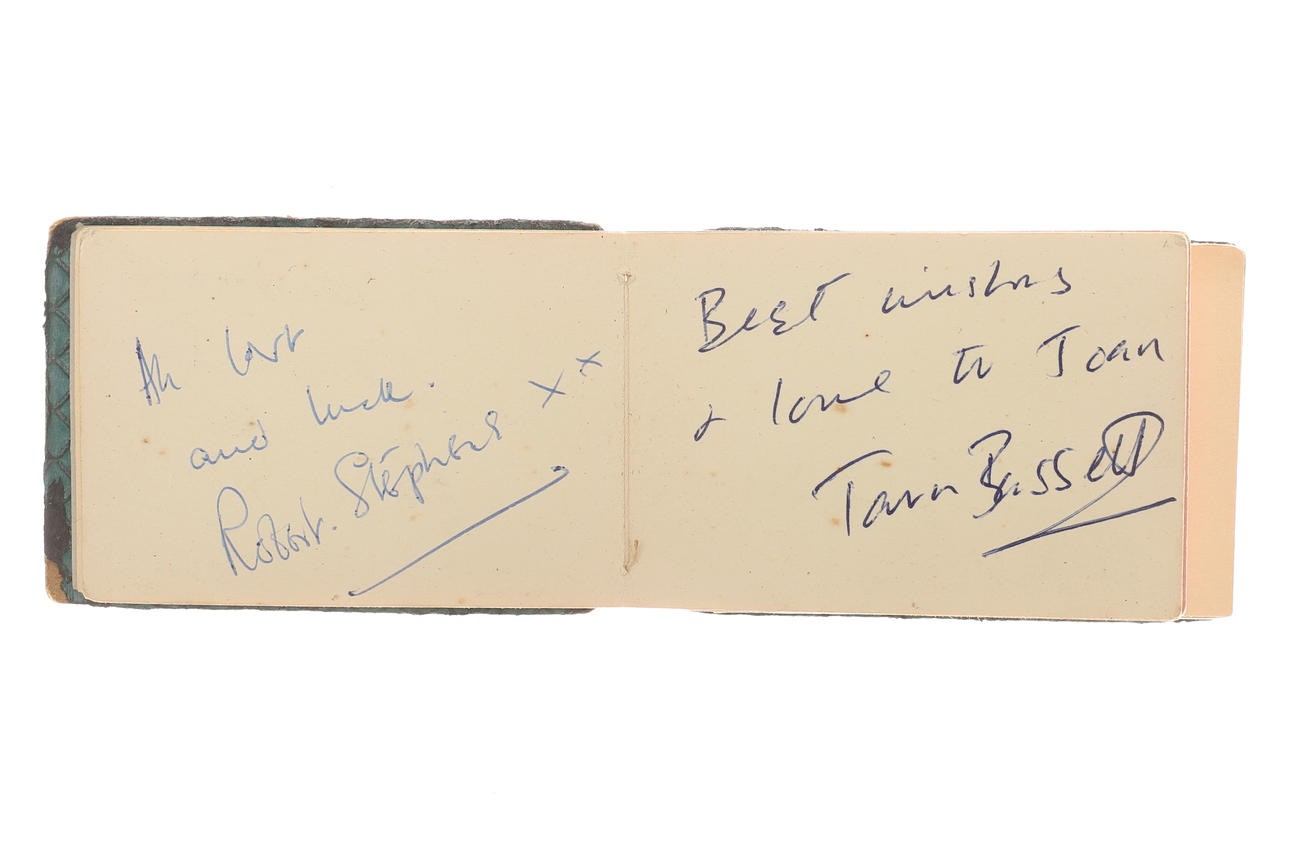 All love
and luck.
Robert. Stephens x x
Best wishes
& love to Joan
Tara Bassett